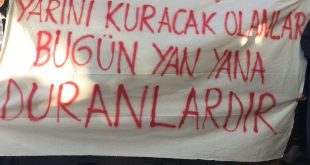 YARINI KURACAK OLANLAR
BUGÜN YAN YANA
DURANLARDIR